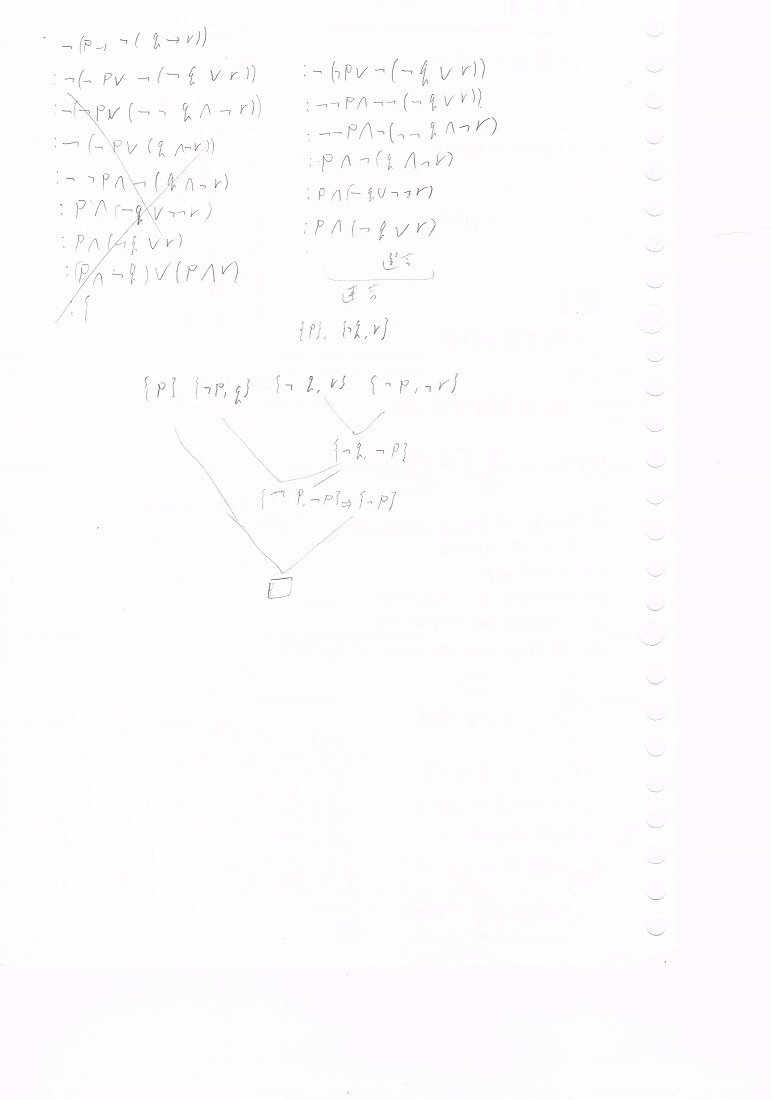 ¬(p→ ¬(q→r))
:¬(¬p∨ ¬(¬q∨r))
:¬(¬p∨(¬¬q∧¬r))
:¬(¬p∨(q∧¬r))
:¬¬p∧¬(q∧¬r)
:p∧(¬q∨¬¬r)
:p∧(¬q∨r)
:(p∧¬q)∨(p∧r)
:{
:¬(¬p∨¬(¬q∨r))
:¬¬p∧¬¬(¬q∨r))
:¬¬p∧¬(¬¬q∧¬r)
:p∧¬(q∧¬r)
:p∧(¬q∨¬¬r)
:p∧(¬q∨r)
選言
連言
{p}, {¬q,r}
{p} {¬p,q} {¬q,r} {¬p,¬r}
{¬q,¬p}
{¬p,¬p}⇒{¬p}
□